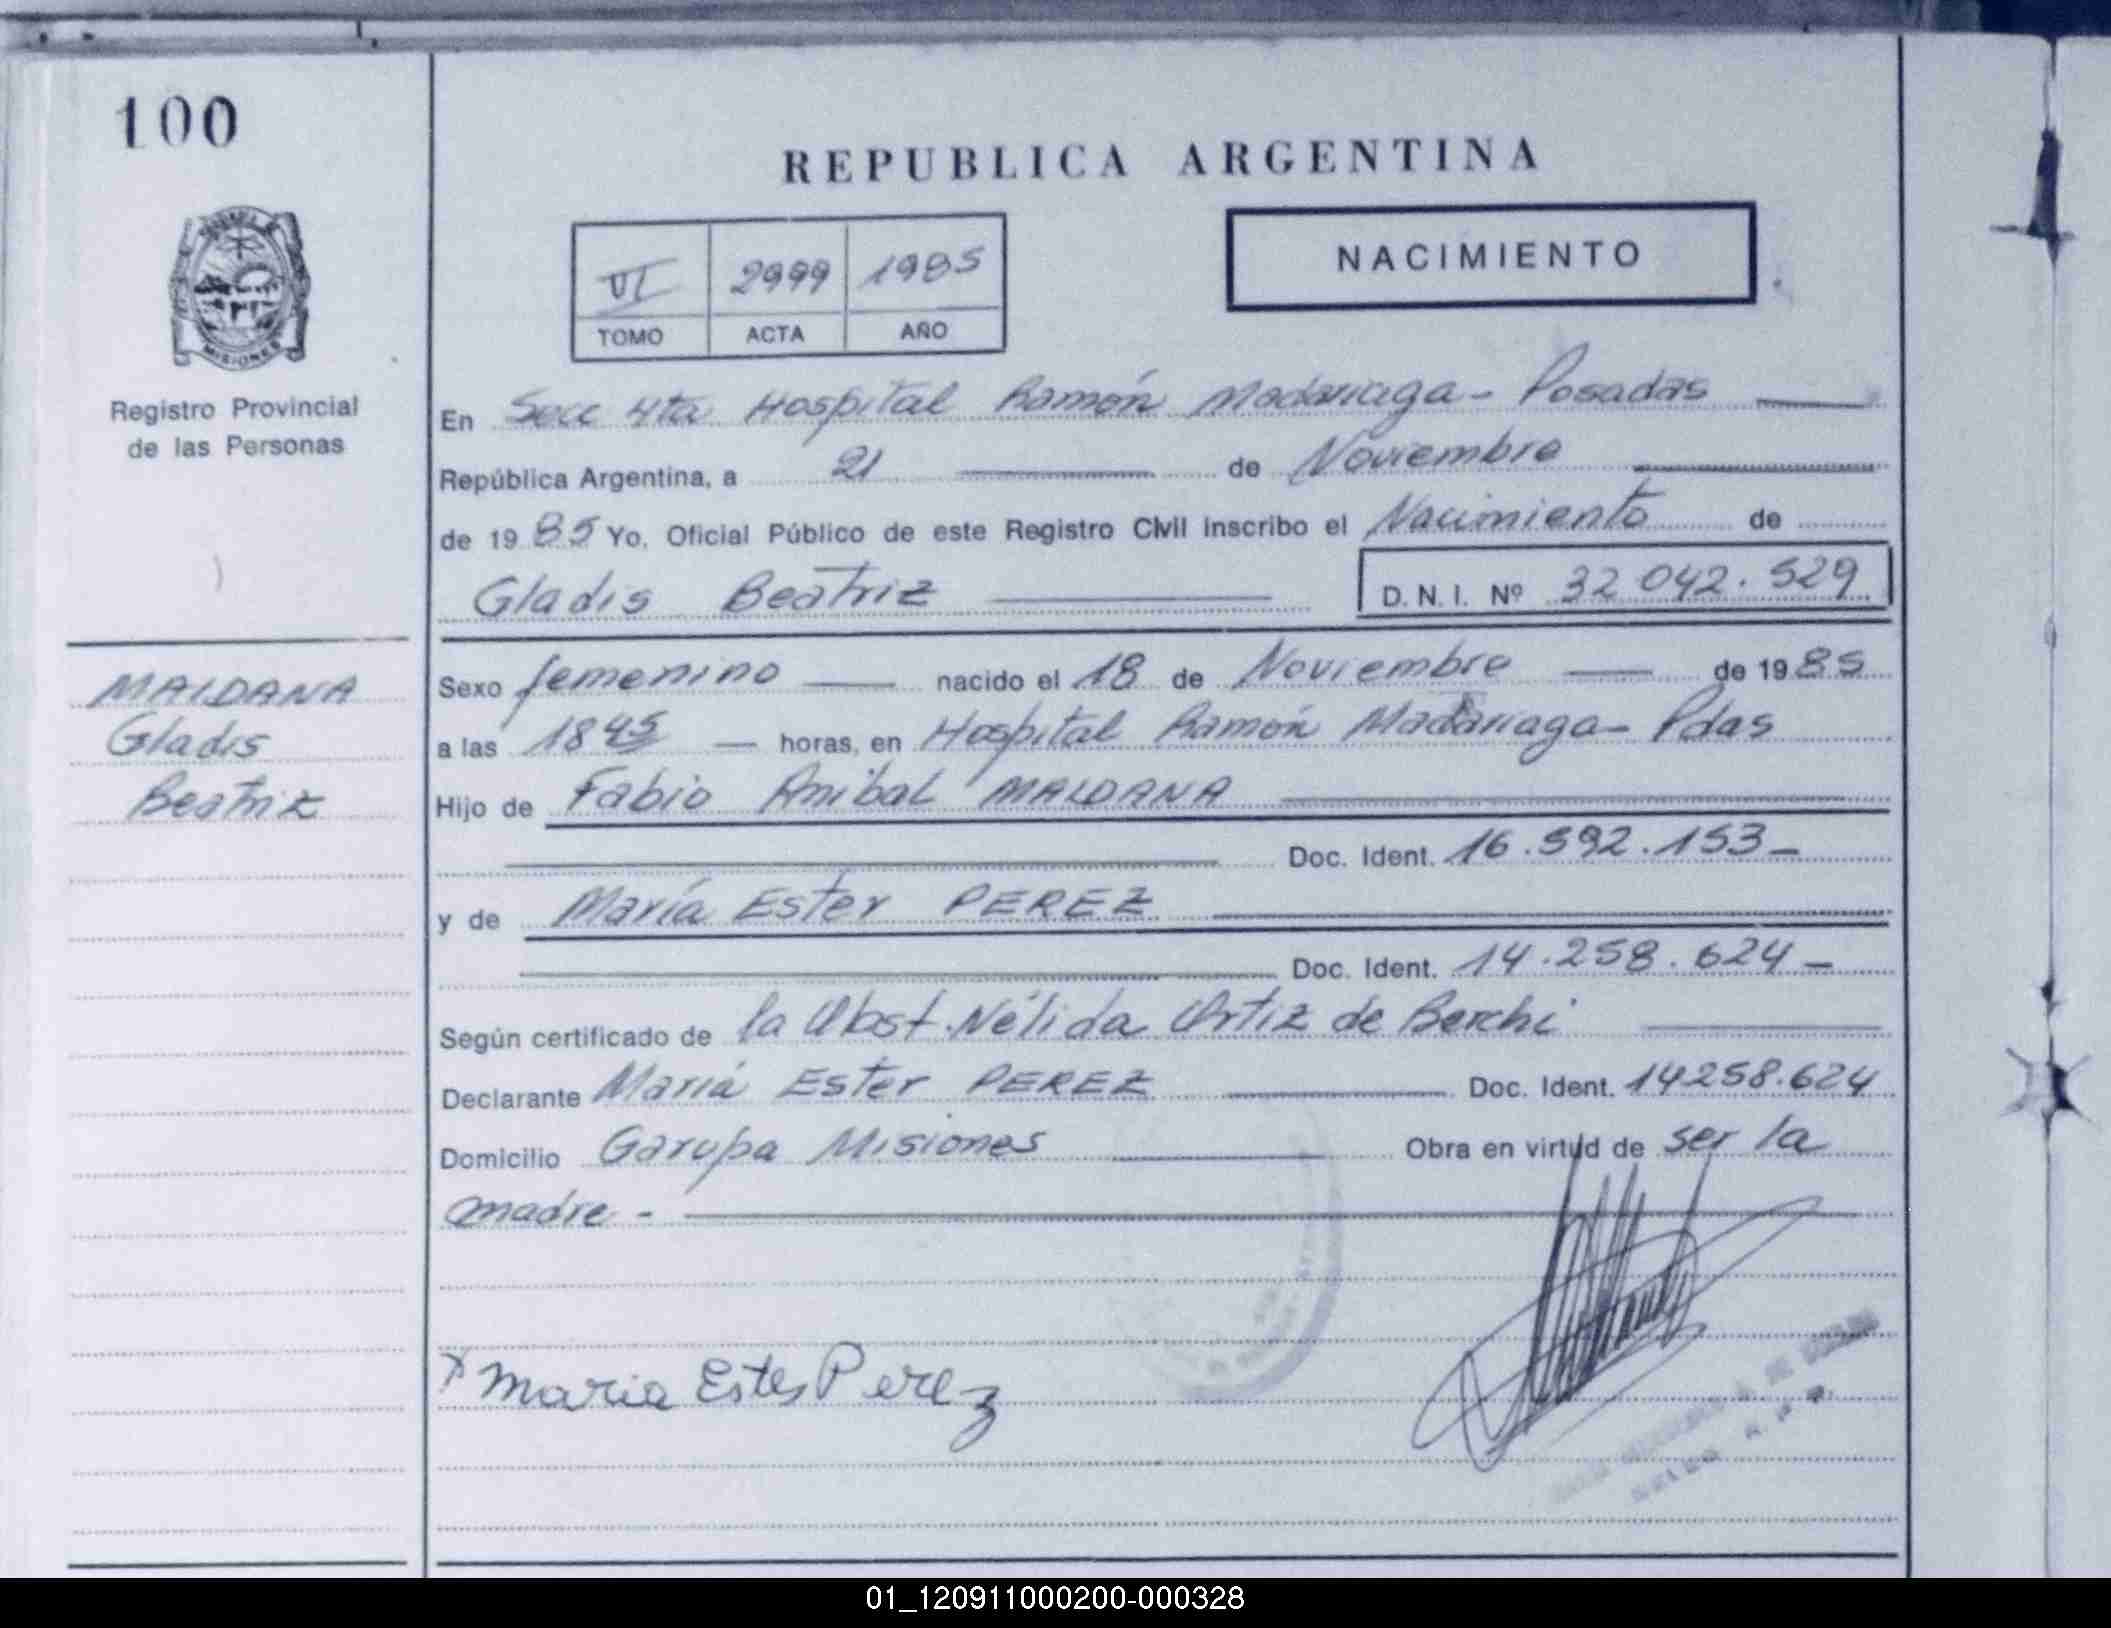 100
REPUBLICA ARGENTINA
NACIMIENTO
VI 2999 1985
TOMO ACTA AÑO
MISIONES
Registro Provincial
de las Personas
En Secc 4ta Hospital Ramón Madariaga - Posadas
República Argentina, a 21 de Noviembre
de 1985 Yo, Oficial Público de este Registro Civil inscribo el Nacimiento de
Gladis Beatriz D.N.I. Nº 32 042.529
MALDANA
Gladis
Beatriz
Sexo femenino nacido el 18 de Noviembre de 1985
a las 18 45 horas, en Hospital Ramón Madariaga - Pdas
Hijo de Fabio Anibal MALDANA
Doc. Ident. 16.592.153
y de María Ester PEREZ
Doc. Ident. 14.258.624
Según certificado de la Obst. Nélida Ortiz de Berchi
Declarante María Ester PEREZ Doc. Ident. 14258.624
Domicilio Garupa Misiones Obra en virtud de ser la
madre -
x Maria Ester Perez
01_120911000200-000328